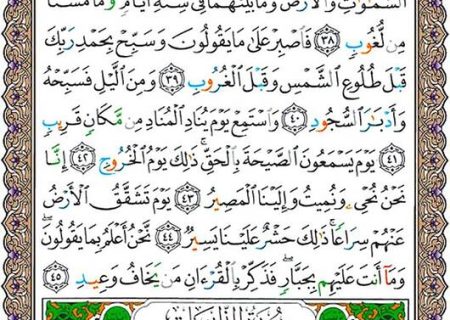 السَّمَٰوَٰتِ وَٱلْأَرْضَ وَمَا بَيْنَهُمَا فِي سِتَّةِ أَيَّامٍ وَمَا مَسَّنَا
مِن لُّغُوبٍ ٣٨ فَٱصْبِرْ عَلَىٰ مَا يَقُولُونَ وَسَبِّحْ بِحَمْدِ رَبِّكَ
قَبْلَ طُلُوعِ ٱلشَّمْسِ وَقَبْلَ ٱلْغُرُوبِ ٣٩ وَمِنَ ٱلَّيْلِ فَسَبِّحْهُ
وَأَدْبَٰرَ ٱلسُّجُودِ ٤٠ وَٱسْتَمِعْ يَوْمَ يُنَادِ ٱلْمُنَادِ مِن مَّكَانٍ قَرِيبٍ
٤١ يَوْمَ يَسْمَعُونَ ٱلصَّيْحَةَ بِٱلْحَقِّ ۚ ذَٰلِكَ يَوْمُ ٱلْخُرُوجِ ٤٢ إِنَّا
نَحْنُ نُحْىِۦ وَنُمِيتُ وَإِلَيْنَا ٱلْمَصِيرُ ٤٣ يَوْمَ تَشَقَّقُ ٱلْأَرْضُ
عَنْهُمْ سِرَاعًا ۚ ذَٰلِكَ حَشْرٌ عَلَيْنَا يَسِيرٌ ٤٤ نَّحْنُ أَعْلَمُ بِمَا يَقُولُونَ ۖ
وَمَآ أَنتَ عَلَيْهِم بِجَبَّارٍ ۖ فَذَكِّرْ بِٱلْقُرْءَانِ مَن يَخَافُ وَعِيدِ ٤٥
سُورَةُ ٱلذَّارِيَاتِ